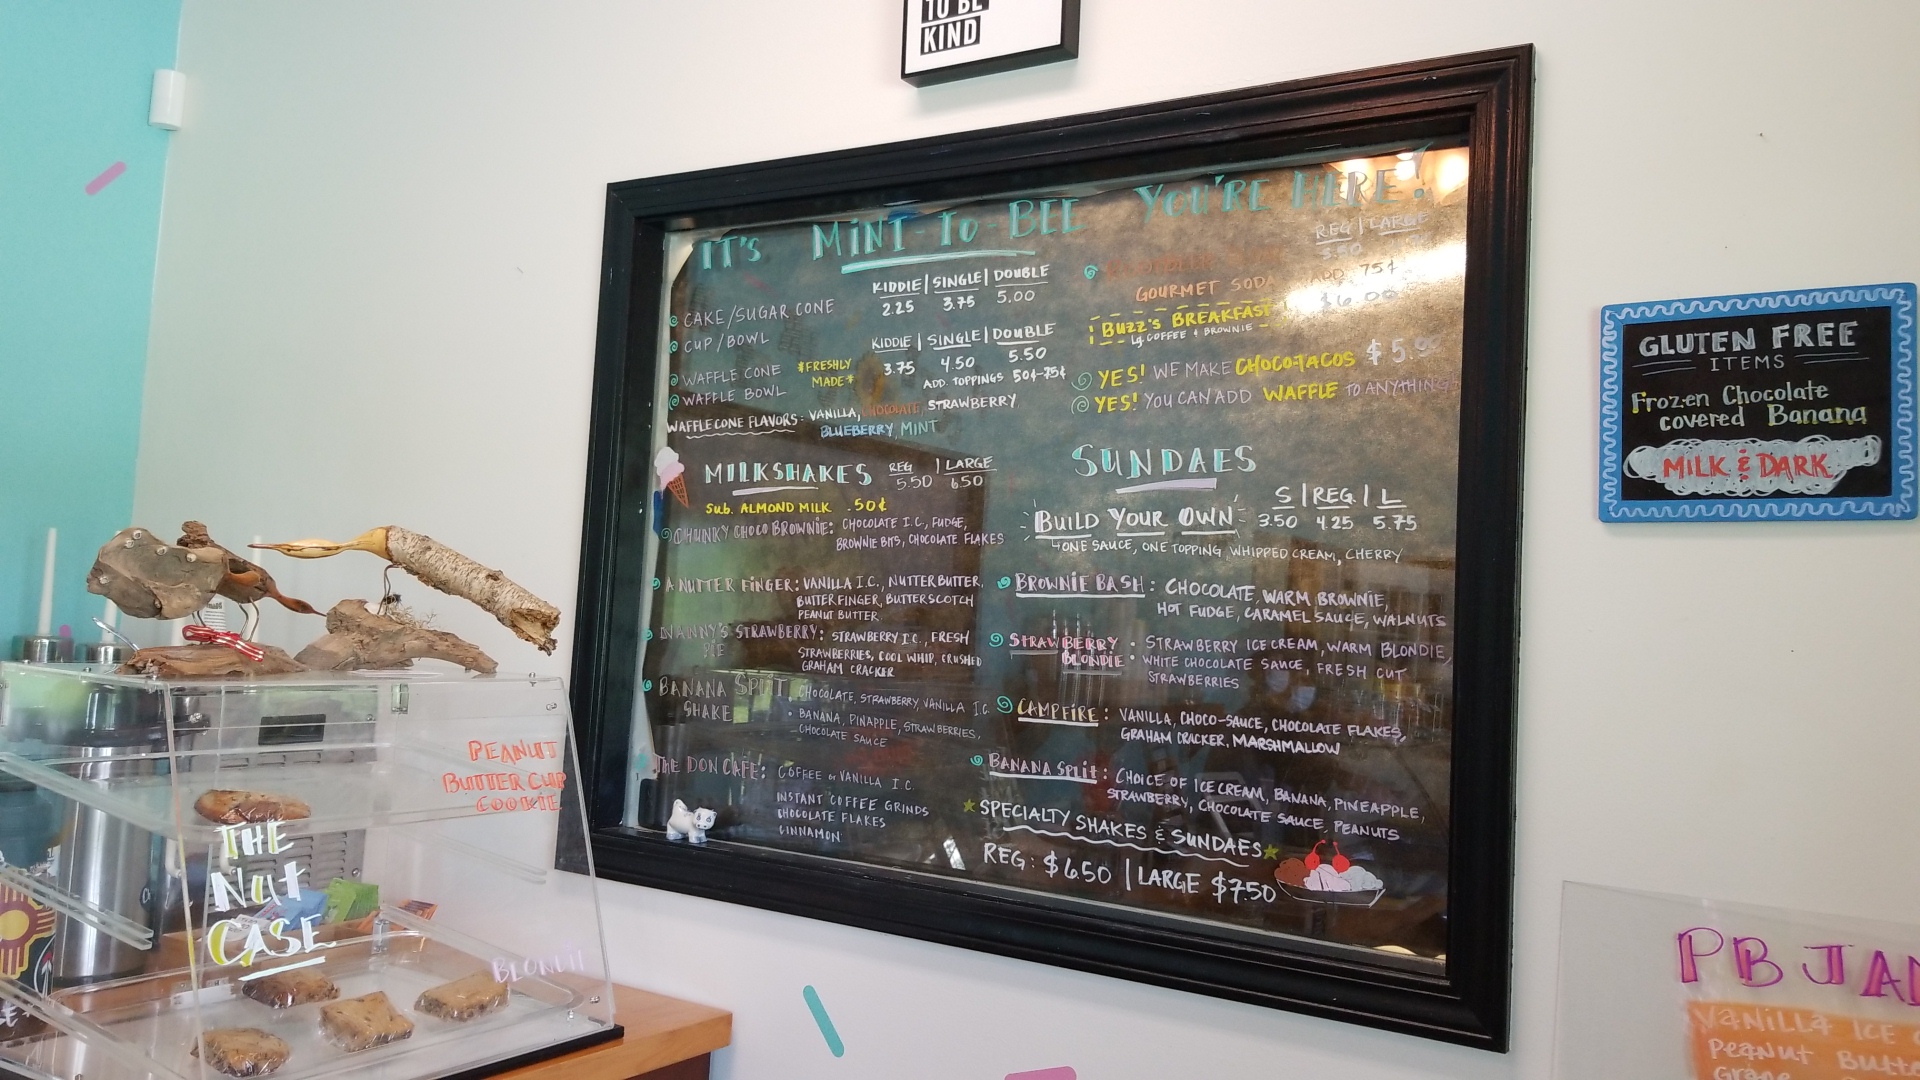 TO BE
KIND
IT'S MINT-TO-BEE YOU'RE HERE!
KIDDIE | SINGLE | DOUBLE
2.25 3.75 5.00
CAKE/SUGAR CONE
CUP/BOWL
KIDDIE | SINGLE | DOUBLE
3.75 4.50 5.50
WAFFLE CONE
WAFFLE BOWL
*FRESHLY
MADE*
ADD. TOPPINGS 50¢-75¢
WAFFLE CONE FLAVORS: VANILLA, CHOCOLATE, STRAWBERRY
BLUEBERRY, MINT
MILKSHAKES REG | LARGE
5.50 6.50
Sub. ALMOND MILK .50¢
CHUNKY CHOCO BROWNIE: CHOCOLATE I.C., FUDGE,
BROWNIE BITS, CHOCOLATE FLAKES
A NUTTER FINGER: VANILLA I.C., NUTTERBUTTER,
BUTTERFINGER, BUTTERSCOTCH
PEANUT BUTTER
NANNY'S STRAWBERRY PIE: STRAWBERRY I.C., FRESH
STRAWBERRIES, COOL WHIP, CRUSHED
GRAHAM CRACKER
BANANA SPLIT SHAKE: CHOCOLATE, STRAWBERRY, VANILLA I.C.
BANANA, PINAPPLE, STRAWBERRIES,
CHOCOLATE SAUCE
THE DON CAFE: COFFEE or VANILLA I.C.
INSTANT COFFEE GRINDS
CHOCOLATE FLAKES
CINNAMON
REG | LARGE
GOURMET SODA ADD 75¢
BUZZ'S BREAKFAST $6.00
COFFEE & BROWNIE
YES! WE MAKE CHOCO-TACOS
YES! YOU CAN ADD WAFFLE TO ANYTHING!
SUNDAES
S | REG. | L
BUILD YOUR OWN 3.50 4.25 5.75
ONE SAUCE, ONE TOPPING, WHIPPED CREAM, CHERRY
BROWNIE BASH: CHOCOLATE, WARM BROWNIE,
HOT FUDGE, CARAMEL SAUCE, WALNUTS
STRAWBERRY BLONDIE: STRAWBERRY ICE CREAM, WARM BLONDIE,
WHITE CHOCOLATE SAUCE, FRESH CUT
STRAWBERRIES
CAMPFIRE: VANILLA, CHOCO-SAUCE, CHOCOLATE FLAKES,
GRAHAM CRACKER, MARSHMALLOW
BANANA SPLIT: CHOICE OF ICE CREAM, BANANA, PINEAPPLE,
STRAWBERRY, CHOCOLATE SAUCE, PEANUTS
SPECIALTY SHAKES & SUNDAES
REG: $6.50 | LARGE $7.50
GLUTEN FREE
ITEMS
Frozen Chocolate
covered Banana
MILK & DARK
PEANUT
BUTTER CUP
COOKIE
THE
NUT
CASE
PB JA
VANILLA ICE
PEANUT BUTT